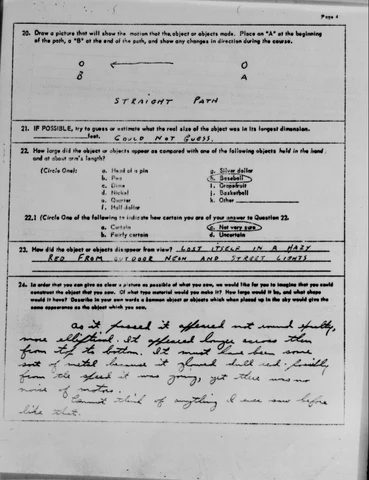 Page 4
20. Draw a picture that will show the motion that the object or objects made. Place an "A" at the beginning
of the path, a "B" at the end of the path, and show any changes in direction during the course.
O O
B A
STRAIGHT PATH
21. IF POSSIBLE, try to guess or estimate what the real size of the object was in its longest dimension.
feet. COULD NOT GUESS.
22. How large did the object or objects appear as compared with one of the following objects held in the hand
and at about arm's length?
(Circle One): a. Head of a pin g. Silver dollar
b. Pea h. Baseball
c. Dime i. Grapefruit
d. Nickel j. Basketball
e. Quarter k. Other
f. Half dollar
22.1 (Circle One of the following to indicate how certain you are of your answer to Question 22.
a. Certain c. Not very sure
b. Fairly certain d. Uncertain
23. How did the object or objects disappear from view? LOST ITSELF IN A HAZY
RED FROM OUTDOOR NEON AND STREET LIGHTS
24. In order that you can give as clear a picture as possible of what you saw, we would like for you to imagine that you could
construct the object that you saw. Of what type material would you make it? How large would it be, and what shape
would it have? Describe in your own words a common object or objects which when placed up in the sky would give the
same appearance as the object which you saw.
As it passed it appeared not round exactly,
more elliptical. It appeared longer across than
from top to bottom. It must have been some
sort of metal because it glowed dull red possibly
from the speed it was going, yet there was no
noise of motors.
Cannot think of anything I ever saw before
like that.